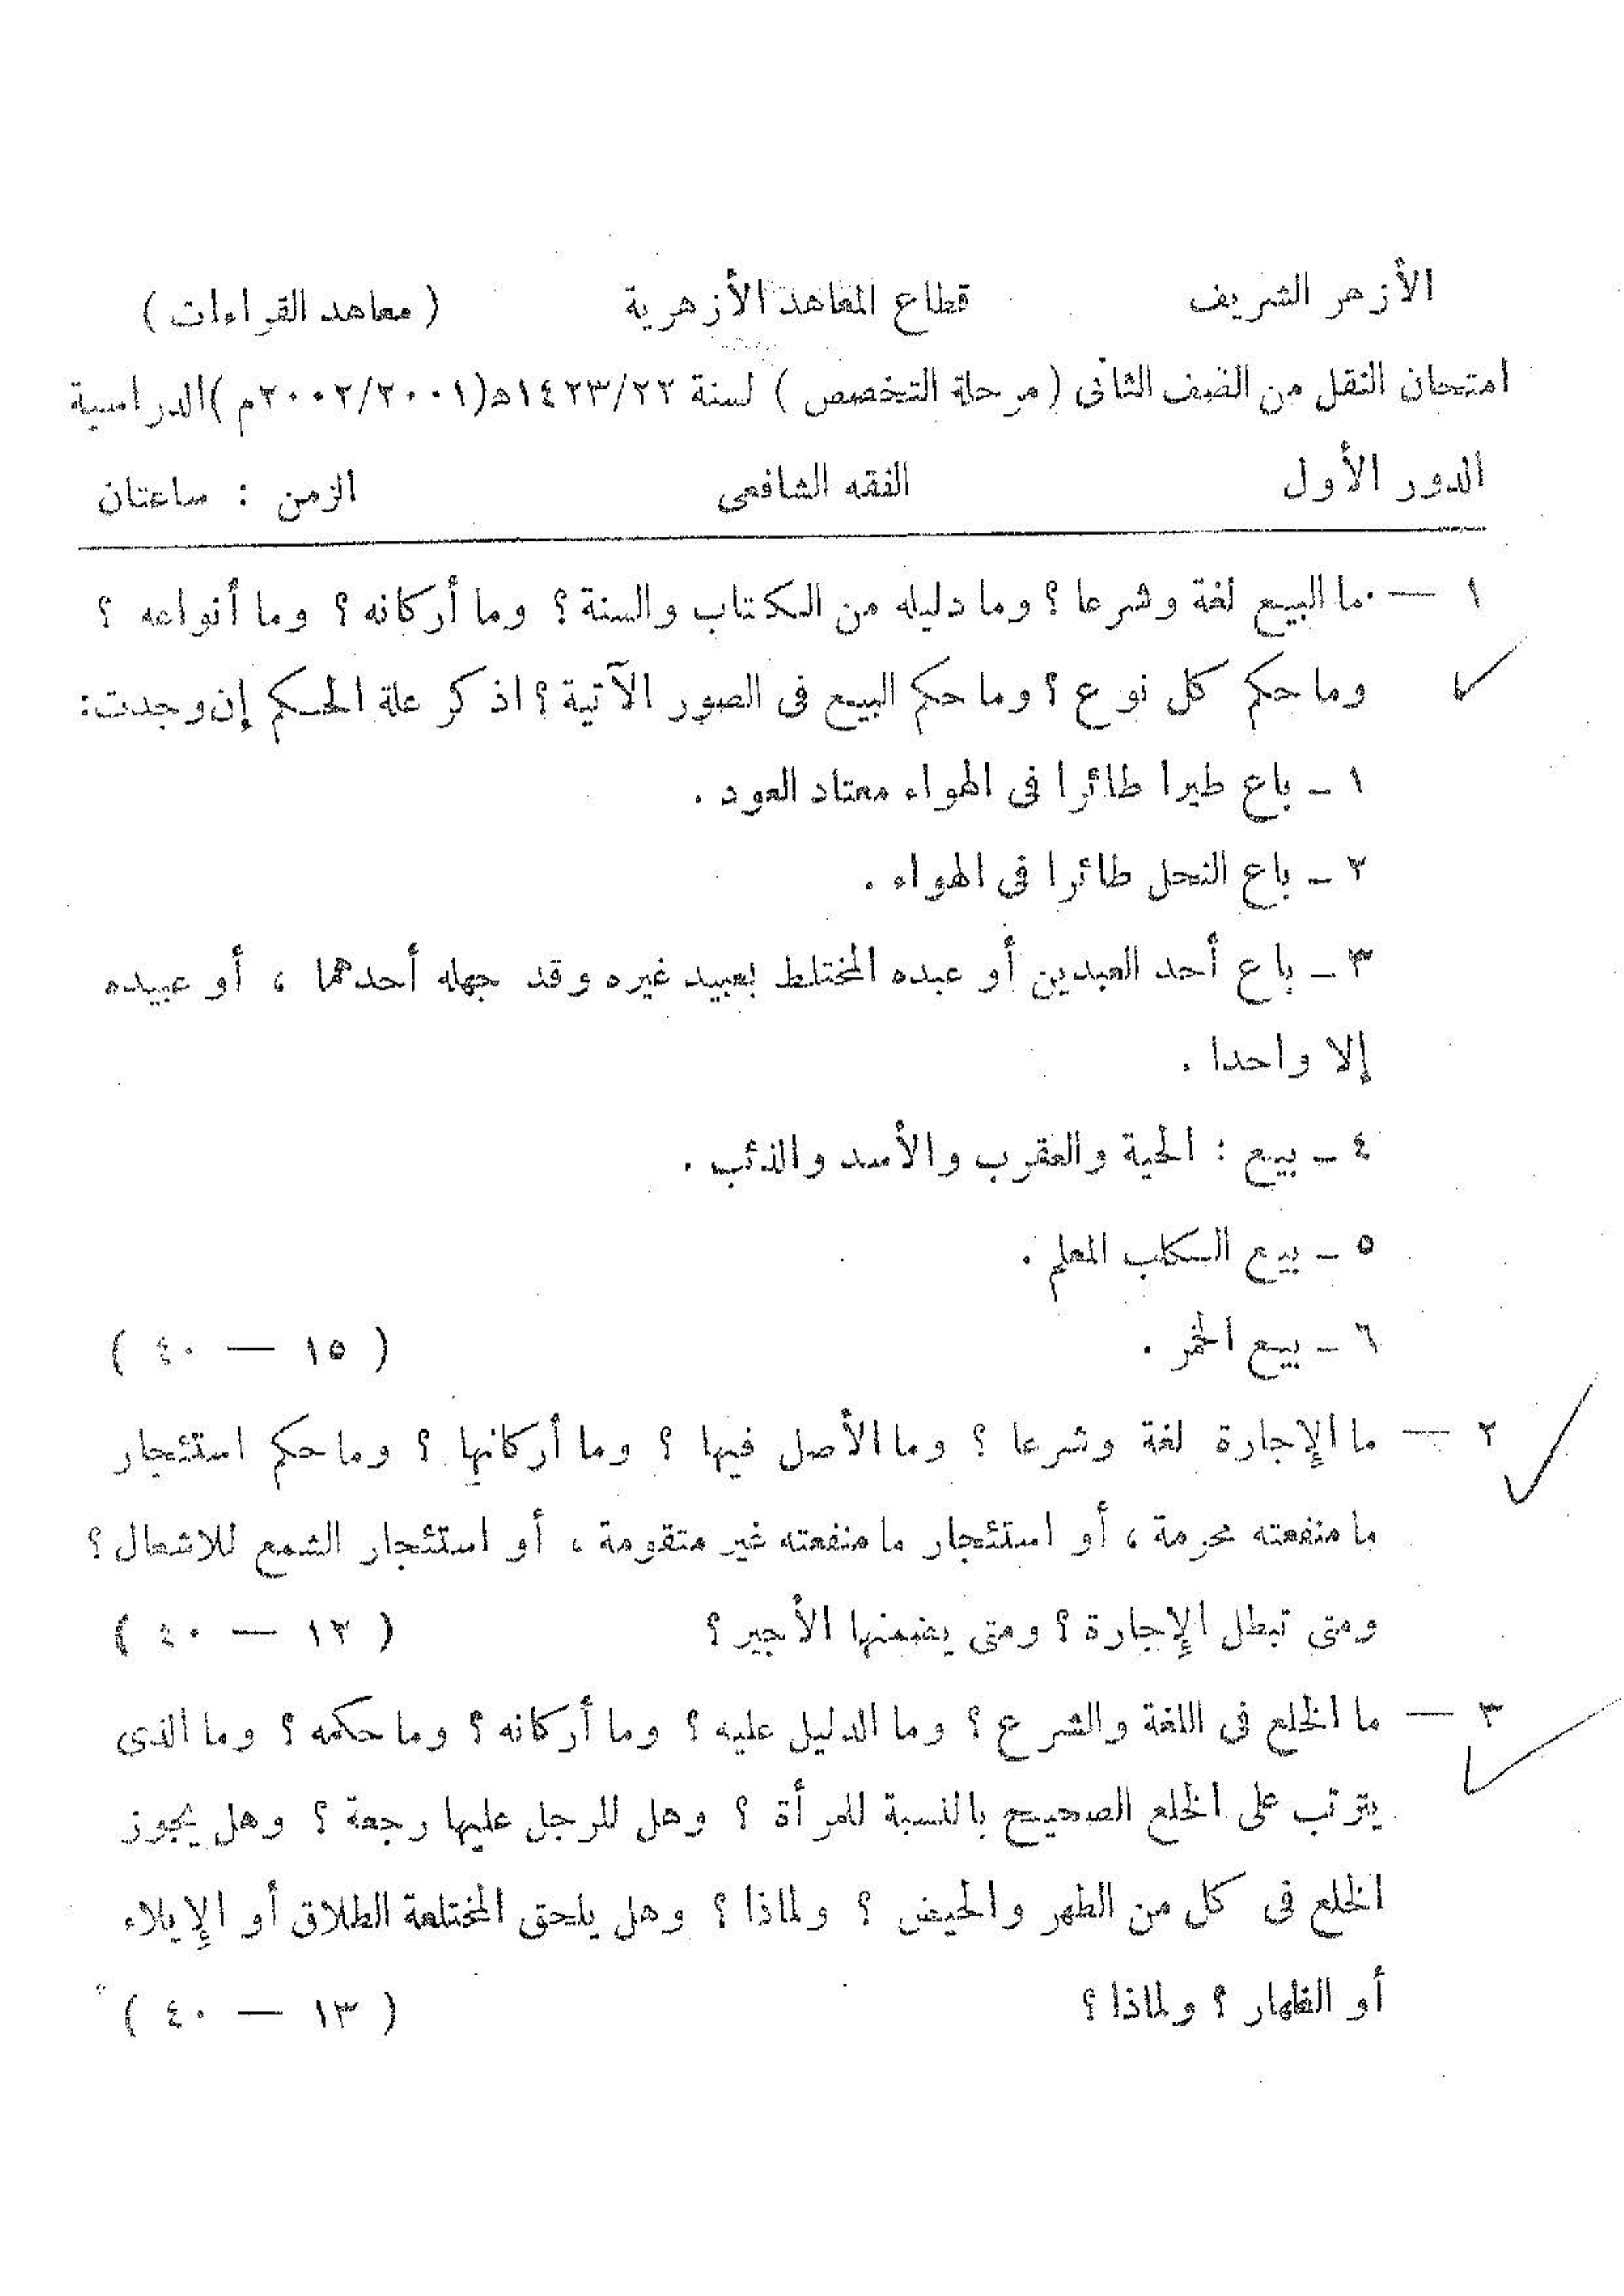 الأزهر الشريف قطاع المعاهد الأزهرية ( معاهد القراءات )
امتحان النقل من الصف الثانى ( مرحلة التخصص ) لسنة ١٤٢٣/٢٢ه(٢٠٠٢/٢٠٠١م)الدراسية
الدور الأول الفقه الشافعى الزمن : ساعتان
١ — ما البيع لغة وشرعا ؟ وما دليله من الكتاب والسنة ؟ وما أركانه ؟ وما أنواعه ؟
وما حكم كل نوع ؟ وما حكم البيع فى الصور الآتية ؟ اذكر علة الحكم إن وجدت:
١ ـ باع طيرا طائرا فى الهواء معتاد العود .
٢ ـ باع النحل طائرا فى الهواء .
٣ ـ باع أحد العبدين أو عبده المختلط بعبيد غيره وقد جهله أحدهما ، أو عبيده
إلا واحدا .
٤ ـ بيع : الحية والعقرب والأسد والذئب .
٥ ـ بيع الكلب المعلم .
٦ ـ بيع الخمر . ( ١٥ — ٤٠ )
٢ — ما الإجارة لغة وشرعا ؟ وما الأصل فيها ؟ وما أركانها ؟ وما حكم استئجار
ما منفعته محرمة ، أو استئجار ما منفعته غير متقومة ، أو استئجار الشمع للاشعال ؟
ومتى تبطل الإجارة ؟ ومتى يضمنها الأجير ؟ ( ١٢ — ٤٠ )
٣ — ما الخلع فى اللغة والشرع ؟ وما الدليل عليه ؟ وما أركانه ؟ وما حكمه ؟ وما الذى
يترتب على الخلع الصحيح بالنسبة للمرأة ؟ وهل للرجل عليها رجعة ؟ وهل يجوز
الخلع فى كل من الطهر والحيض ؟ ولماذا ؟ وهل يلحق المختلعة الطلاق أو الإيلاء
أو الظهار ؟ ولماذا ؟ ( ١٣ — ٤٠ )